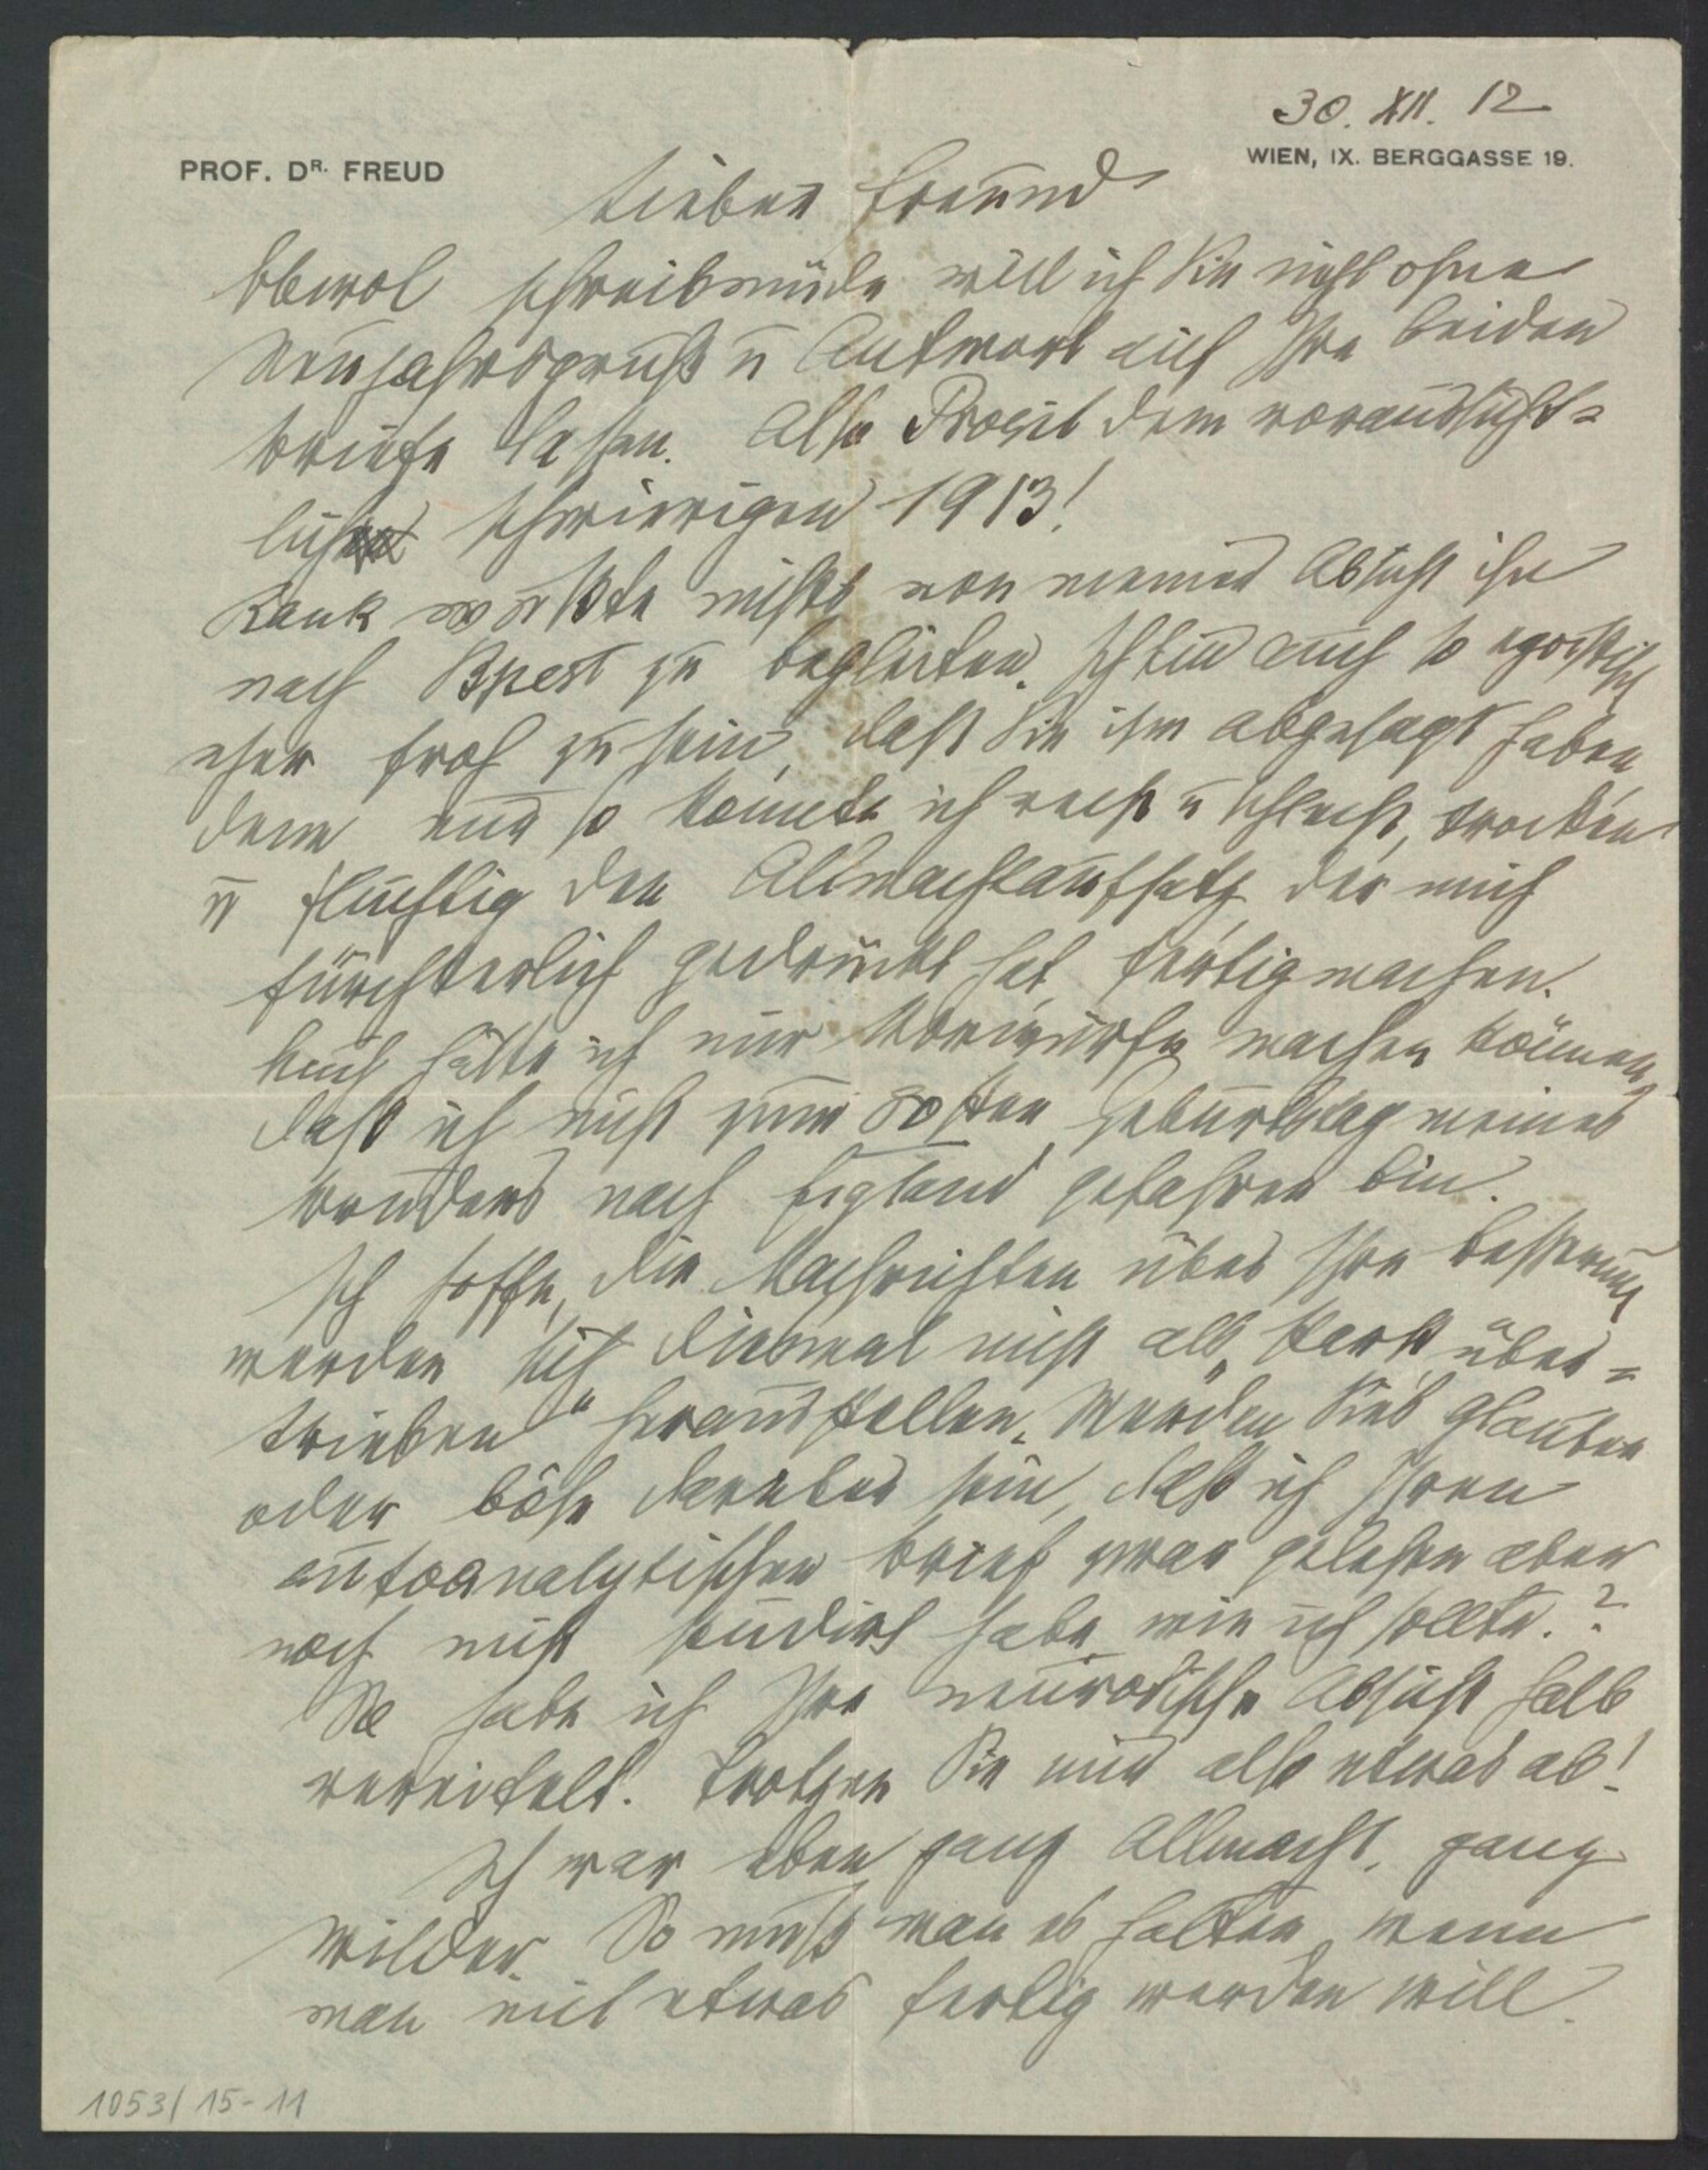 30. XII. 12
PROF. DR. FREUD
WIEN, IX. BERGGASSE 19.
Lieber Freund
Obwol schreibmüde will ich Sie nicht ohne
Neujahrsgruß u Antwort auf Ihre beiden
Briefe lassen. Also Prosit dem voraussicht=
lich schwierigen 1913!
Rank wußte nichts von meiner Absicht ihn
nach Bpest zu begleiten. Ich bin auch so egoistisch
eher froh zu sein, daß Sie ihm abgesagt haben,
denn nur so konnte ich recht u schlecht, trocken
u flüchtig den Allmachtaufsatz, der mich
fürchterlich gedrückt hat, fertigmachen.
Auch hätte ich mir Vorwürfe machen können,
daß ich nicht zum 80sten Geburtstag meines
Bruders nach England gefahren bin.
Ich hoffe, die Nachrichten über Ihre Besserung
werden sich diesmal nicht als „stark über=
trieben“ herausstellen. Werden Sie's glauben
oder böse darüber sein, daß ich Ihren
autoanalytischen Brief zwar gelesen aber
noch nicht studirt habe wie ich sollte.?
Da habe ich Ihre neurotische Absicht halb
vereitelt. Trotzen Sie mir also etwas ab!
Ich war eben ganz Allmacht, ganz
Wilder. So muß man es halten, wenn
man mit etwas fertig werden will.
1053/15-11